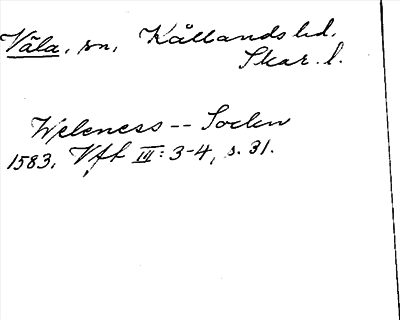 Våla, sn, Kållands hd.
Skar. l.
Weleness -- Sockn
1583, Vft III: 3-4, s. 31.